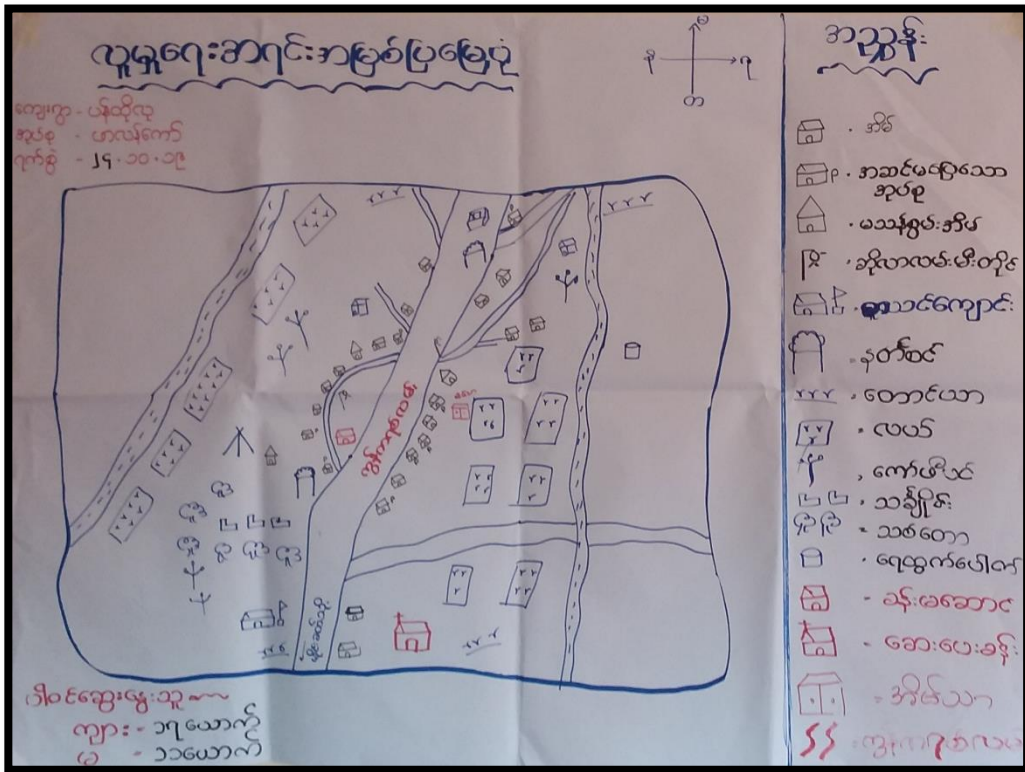 လူမှုရေးအရင်းအမြစ်ပြမြေပုံ
ကျေးရွာ - ပန်ထိုလု
အုပ်စု - ဟာလန်ကော်
ရက်စွဲ - ၂၄.၁၀.၁၉
မ
န
ရ
တ
အညွှန်း
. အိမ်
. အဆင်မပြေသော
အုပ်စု
. မသန်စွမ်းအိမ်
. ဆိုလာလမ်းမီးတိုင်
စာသင်ကျောင်း
= နတ်စင်
= တောင်ယာ
. လယ်
, ကော်ဖီပင်
. သချႋုင်း
= သစ်တော
. ရေထွက်ပေါက်
- ခန်းမဆောင်
- ဆေးပေးခန်း
- အိမ်သာ
ပါဝင်ဆွေးနွေးသူ
ကျား - ၁၇ယောက်
မ - ၁၁ယောက်